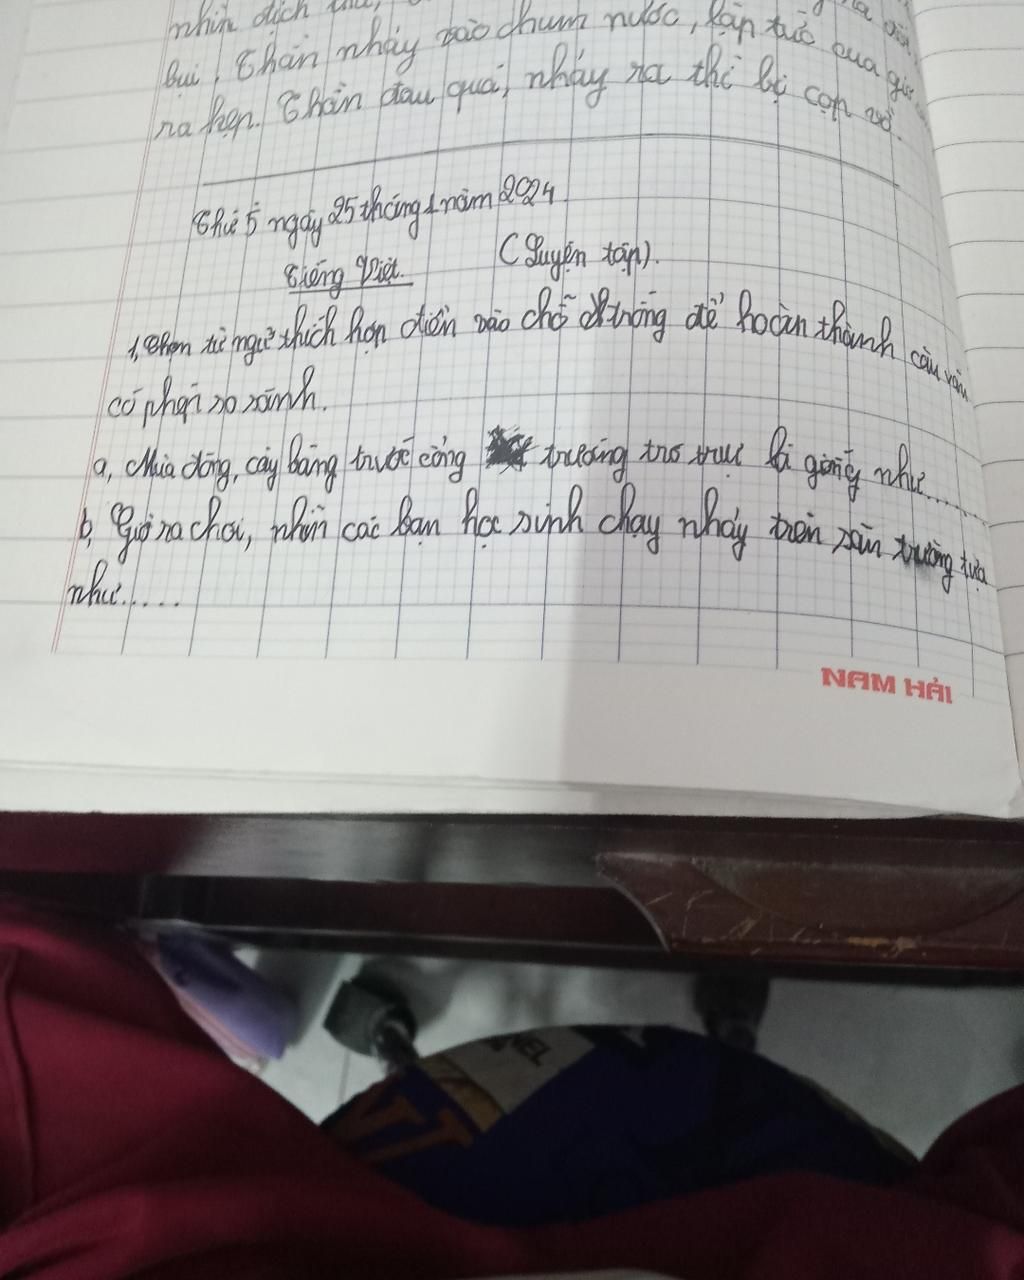 nhìn địch
bụi, Thần nhảy vào chum nước, lập tức cua giơ
ra kẹp. Thần đau quá, nhảy ra thì bị cọp vồ.
Thứ 5 ngày 25 tháng 1 năm 2024
Tiếng Việt. (Luyện tập).
1, Chọn từ ngữ thích hợp điền vào chỗ trống để hoàn thành câu văn
có phép so sánh.
a, Mùa đông, cây bàng trước cổng trường trơ trụi lá giống như......
b, Giờ ra chơi, nhìn các bạn học sinh chạy nhảy trên sân trường tựa
như.....
NAM HẢI
NEL